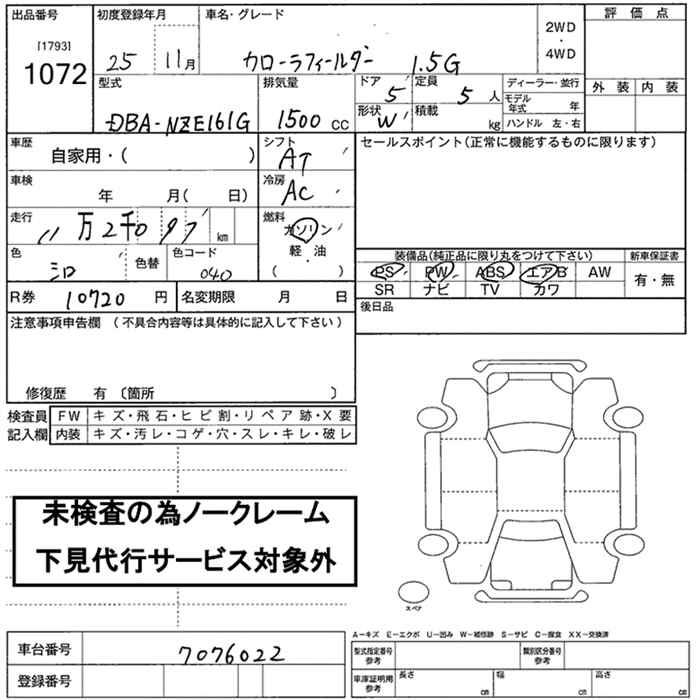 出品番号 初度登録年月 車名・グレード 2WD・4WD 評価点
[1793]
1072 25 11月 カローラフィールダー 1.5G
外装 内装
型式 排気量 ドア 5 定員 5人 ディーラー・並行
DBA-NZE161G 1500 CC 形状 W 積載 kg モデル年式 年
ハンドル 左・右
車歴 自家用・( ) シフト AT セールスポイント(正常に機能するものに限ります)
車検 年 月( 日) 冷房 AC
走行 11万2千097 km 燃料 ガソリン
軽・油
( ・ )
色 シロ 色替 色コード 040
装備品(純正品に限り丸をつけて下さい) 新車保証書
PS PW ABS エアB AW 有・無
SR ナビ TV カワ
R券 10720 円 名変期限 月 日 後日品
注意事項申告欄 (不具合内容等は具体的に記入して下さい)
修復歴 有 〔箇所 〕
検査員 FW キズ・飛石・ヒビ割・リペア跡・X要
記入欄 内装 キズ・汚レ・コゲ・穴・スレ・キレ・破レ
未検査の為ノークレーム
下見代行サービス対象外
スペア
A-キズ E-エクボ U-凹み W-補修跡 S-サビ C-腐食 XX-交換済
車台番号 7076022 型式指定番号 参考 類別区分番号 参考
登録番号 車庫証明用 参考 長さ cm 幅 cm 高さ cm